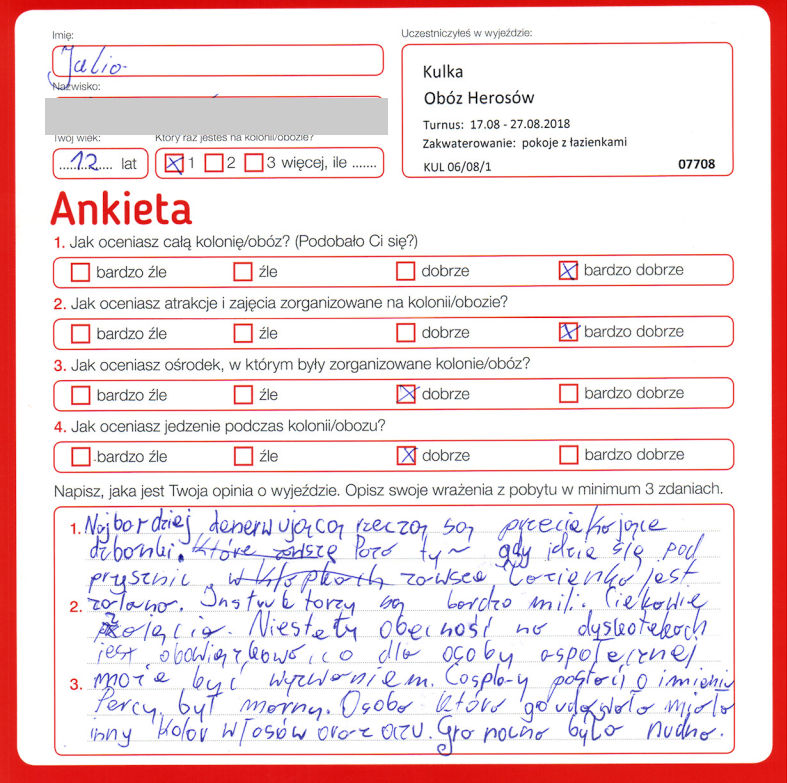 Imię:
Julia
Nazwisko:
Twój wiek:
12 lat
Który raz jesteś na kolonii/obozie?
1 2 3 więcej, ile .......
Uczestniczyłeś w wyjeździe:
Kulka
Obóz Herosów
Turnus: 17.08 - 27.08.2018
Zakwaterowanie: pokoje z łazienkami
KUL 06/08/1 07708
Ankieta
1. Jak oceniasz całą kolonię/obóz? (Podobało Ci się?)
bardzo źle źle dobrze bardzo dobrze
2. Jak oceniasz atrakcje i zajęcia zorganizowane na kolonii/obozie?
bardzo źle źle dobrze bardzo dobrze
3. Jak oceniasz ośrodek, w którym były zorganizowane kolonie/obóz?
bardzo źle źle dobrze bardzo dobrze
4. Jak oceniasz jedzenie podczas kolonii/obozu?
bardzo źle źle dobrze bardzo dobrze
Napisz, jaka jest Twoja opinia o wyjeździe. Opisz swoje wrażenia z pobytu w minimum 3 zdaniach.
1. Najbardziej denerwującą rzeczą są przeciekające
. Które zawsze Poza ty~ gdy idzie się pod
prysznic w klapkach zawsze łazienka jest
2. zalana. Instruktorzy są bardzo mili. Ciekawie
zajęcia. Niestety obecność na dyskotekach
jest obowiązkowa, co dla osoby aspołecznej
3. może być wyzwaniem. Cosplay postaci o imieniu
Percy był marny. Osoba która go udawała miała
inny kolor włosów oraz oczu. Gra nocna była nudna.